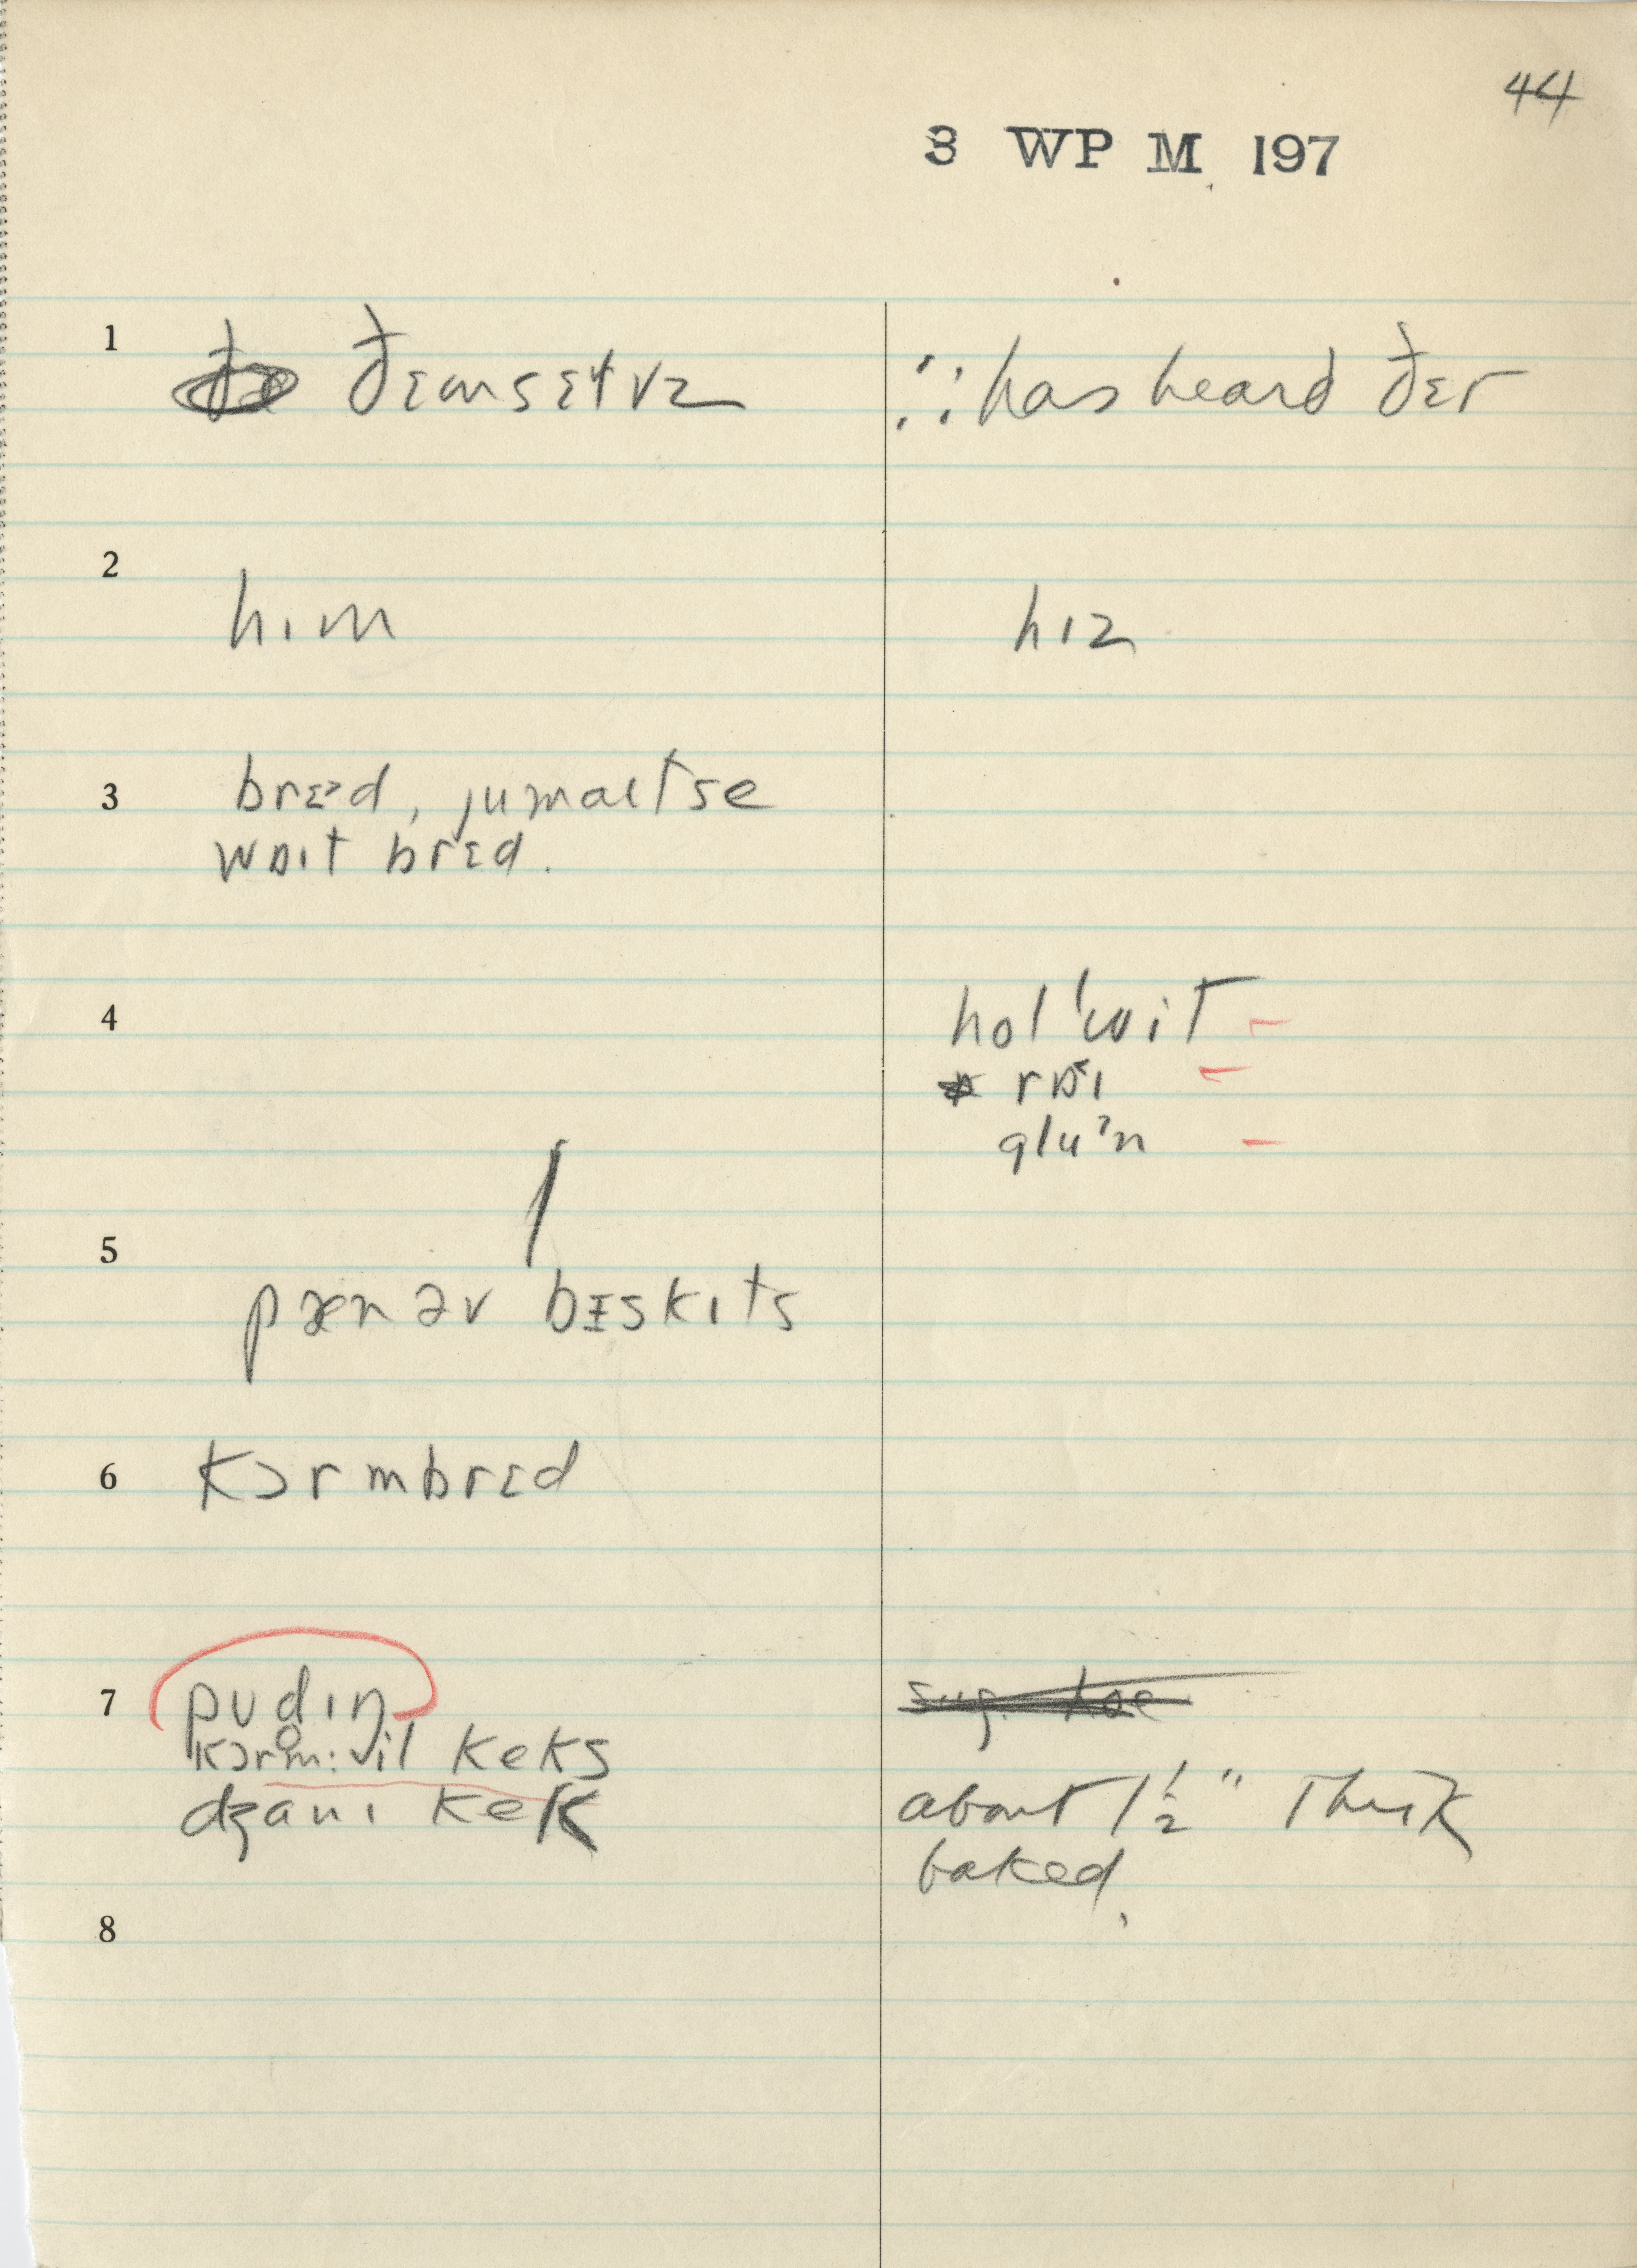 44
3 WP M 197
1 ðɛmsɛɫvz ∴ has heard ðɛr
2 hɪm hɪz
3 brɛᵊd, jumaɪtse
wɒɪt brɛd.
4 hol ˈwit –
rɒ˂ɪ –
gluʔn –
5 pæn əv bɪskɪts
6 kɔrmbrɛd
7 pʊdɪn
kɔrm:il keks
dʒɑnɪ kek about 1½" Thick
baked.
8